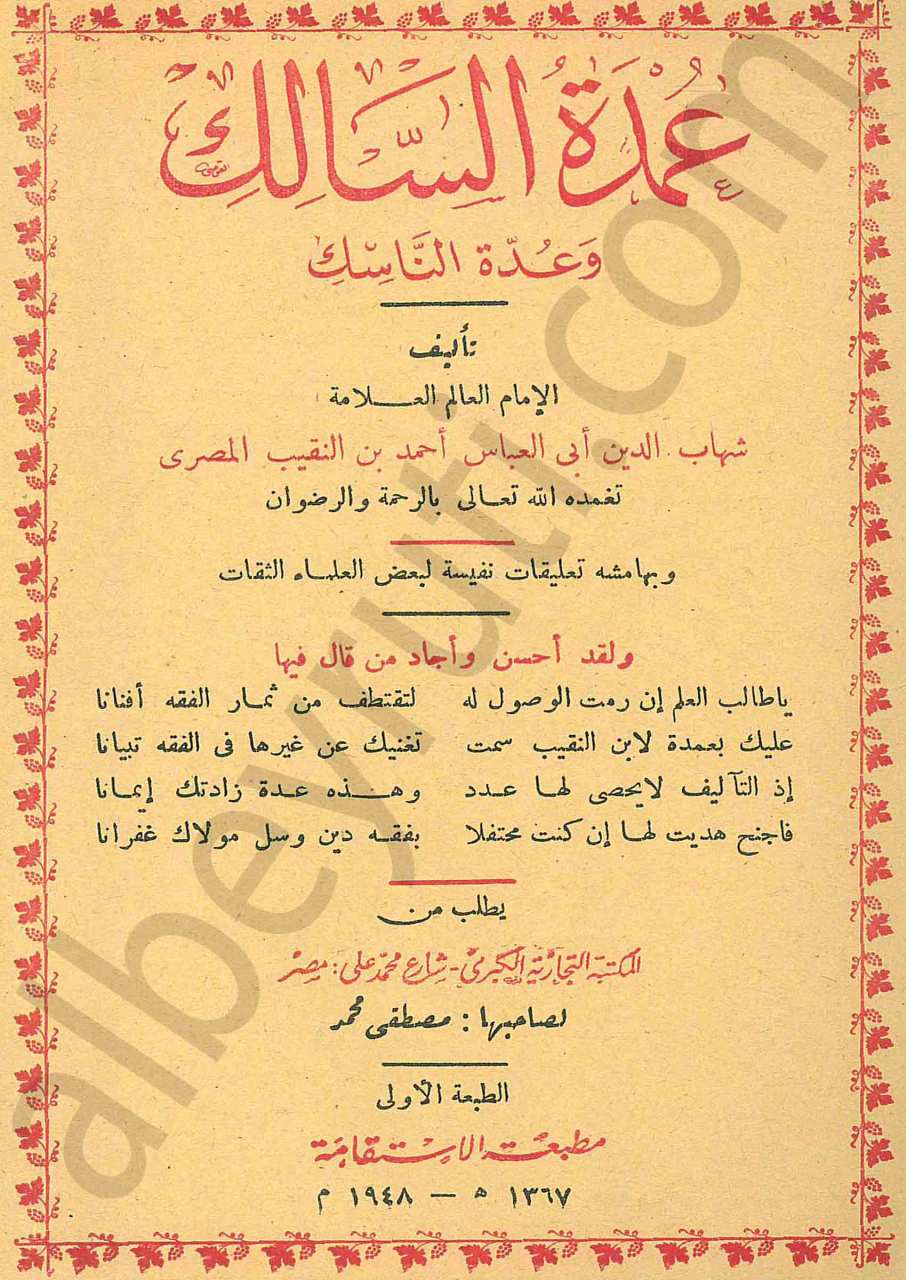 عُمْدَةُ السَّالِكِ
وَعُدّة النَّاسِكِ
تأليف
الإمام العالم العلامة
شهاب الدين أبى العباس أحمد بن النقيب المصرى
تغمده الله تعالى بالرحمة والرضوان
وبهامشه تعليقات نفيسة لبعض العلماء الثقات
ولقد أحسن وأجاد من قال فيها
ياطالب العلم إن رمت الوصول له لتقتطف من ثمار الفقه أفنانا
عليك بعمدة لابن النقيب سمت تغنيك عن غيرها فى الفقه تبيانا
إذ التآليف لايحصى لها عدد وهذه عدة زادتك إيمانا
فاجنح هديت لها إن كنت محتفلا بفقه دين وسل مولاك غفرانا
يطلب من
المكتبة التجارية الكبرى - شارع محمد على : مصر
لصاحبها : مصطفى محمد
الطبعة الأولى
مطبعة الاستقامة
١٣٦٧ ه — ١٩٤٨ م
albeyruti.com